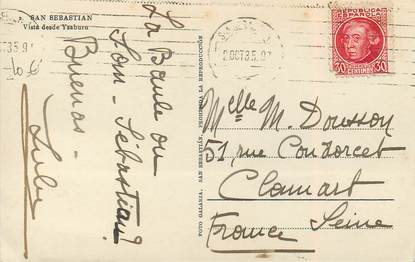 SAN SEBASTIAN
Vista desde Ysaburu
La Baule ou
Son-Sébastian?
Buenas-
Lulu
FOTO GALARZA. SAN SEBASTIÁN. PROHIBIDA LA REPRODUCCIÓN
2 OCT 35
REPUBLICA
ESPAÑOLA
30 CENTIMOS 30
Melle M. Dousson
51, rue Condorcet
Clamart
Seine
France